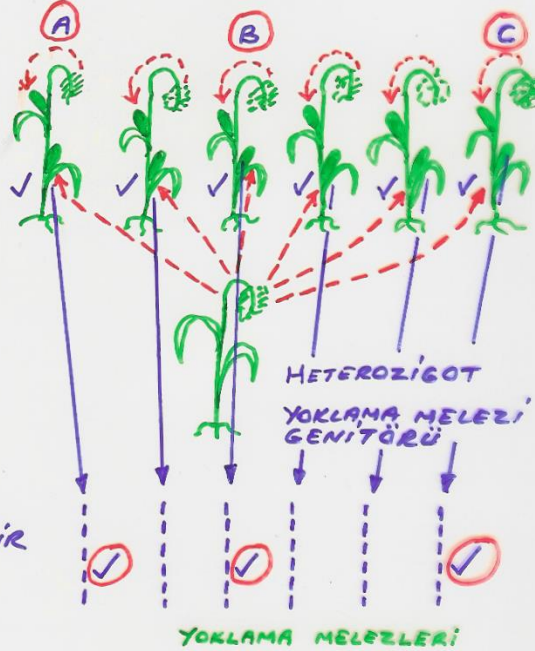 A B C
HETEROZİGOT
YOKLAMA MELEZİ
GENİTÖRÜ
YOKLAMA MELEZLERİ